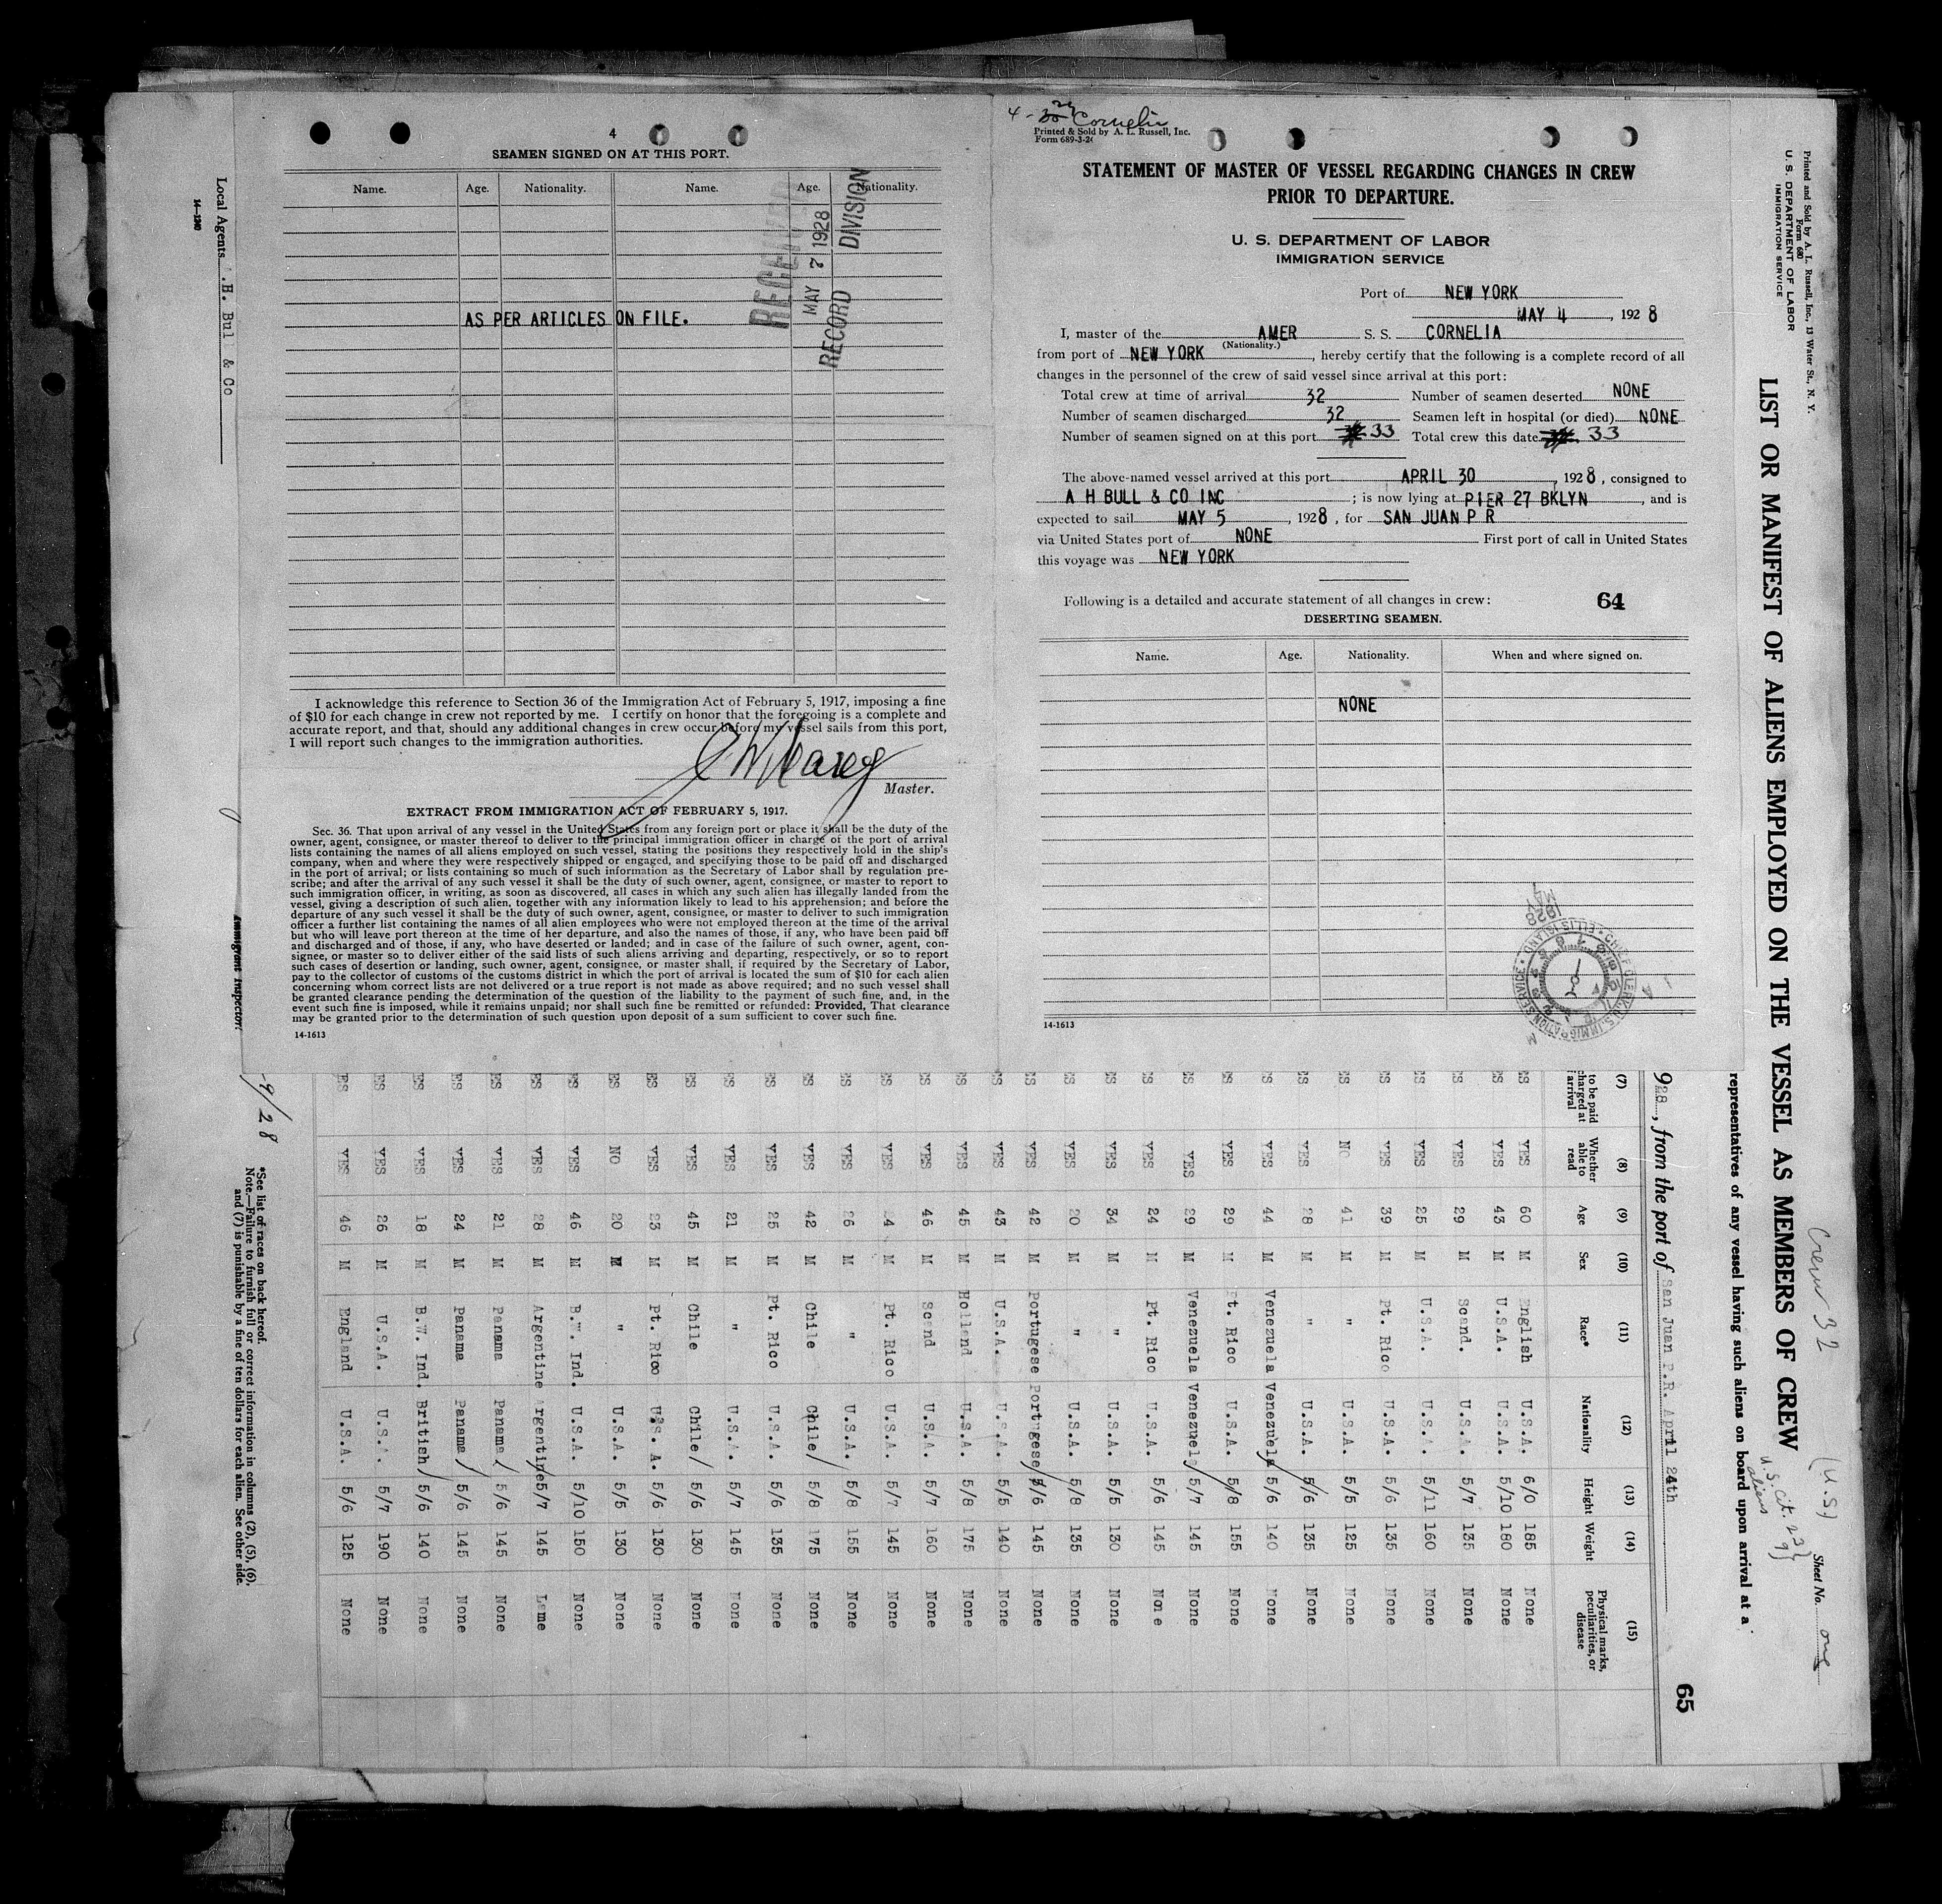 4
SEAMEN SIGNED ON AT THIS PORT.
Name. Age. Nationality. Name. Age. Nationality.
RECEIVED
MAY 7 1928
RECORD DIVISION
AS PER ARTICLES ON FILE.
I acknowledge this reference to Section 36 of the Immigration Act of February 5, 1917, imposing a fine
of $10 for each change in crew not reported by me. I certify on honor that the foregoing is a complete and
accurate report, and that, should any additional changes in crew occur before my vessel sails from this port,
I will report such changes to the immigration authorities.
Master.
EXTRACT FROM IMMIGRATION ACT OF FEBRUARY 5, 1917.
Sec. 36. That upon arrival of any vessel in the United States from any foreign port or place it shall be the duty of the
owner, agent, consignee, or master thereof to deliver to the principal immigration officer in charge of the port of arrival
lists containing the names of all aliens employed on such vessel, stating the positions they respectively hold in the ship's
company, when and where they were respectively shipped or engaged, and specifying those to be paid off and discharged
in the port of arrival; or lists containing so much of such information as the Secretary of Labor shall by regulation pre-
scribe; and after the arrival of any such vessel it shall be the duty of such owner, agent, consignee, or master to report to
such immigration officer, in writing, as soon as discovered, all cases in which any such alien has illegally landed from the
vessel, giving a description of such alien, together with any information likely to lead to his apprehension; and before the
departure of any such vessel it shall be the duty of such owner, agent, consignee, or master to deliver to such immigration
officer a further list containing the names of all alien employees who were not employed thereon at the time of the arrival
but who will leave port thereon at the time of her departure, and also the names of those, if any, who have been paid off
and discharged and of those, if any, who have deserted or landed; and in case of the failure of such owner, agent, con-
signee, or master so to deliver either of the said lists of such aliens arriving and departing, respectively, or so to report
such cases of desertion or landing, such owner, agent, consignee, or master shall, if required by the Secretary of Labor,
pay to the collector of customs of the customs district in which the port of arrival is located the sum of $10 for each alien
concerning whom correct lists are not delivered or a true report is not made as above required; and no such vessel shall
be granted clearance pending the determination of the question of the liability to the payment of such fine, and, in the
event such fine is imposed, while it remains unpaid; nor shall such fine be remitted or refunded: Provided, That clearance
may be granted prior to the determination of such question upon deposit of a sum sufficient to cover such fine.
14-1613
Cornelia
Printed & Sold by A. L. Russell, Inc.
Form 689-3-26
STATEMENT OF MASTER OF VESSEL REGARDING CHANGES IN CREW
PRIOR TO DEPARTURE.
U. S. DEPARTMENT OF LABOR
IMMIGRATION SERVICE
Port of NEW YORK
MAY 4, 1928
I, master of the AMER S. S. CORNELIA
(Nationality.)
from port of NEW YORK, hereby certify that the following is a complete record of all
changes in the personnel of the crew of said vessel since arrival at this port:
Total crew at time of arrival 32 Number of seamen deserted NONE
Number of seamen discharged 32 Seamen left in hospital (or died) NONE
Number of seamen signed on at this port 33 Total crew this date 33
The above-named vessel arrived at this port APRIL 30, 1928, consigned to
A H BULL & CO INC; is now lying at PIER 27 BKLYN, and is
expected to sail MAY 5, 1928, for SAN JUAN P R
via United States port of NONE First port of call in United States
this voyage was NEW YORK
Following is a detailed and accurate statement of all changes in crew: 64
DESERTING SEAMEN.
Name. Age. Nationality. When and where signed on.
NONE
14-1613
Local Agents .H. Bul & Co
14-1240
Immigrant Inspector
Printed and Sold by A. L. Russell, Inc., 13 Water St., N. Y.
Form 680
U. S. DEPARTMENT OF LABOR
IMMIGRATION SERVICE
LIST OR MANIFEST OF ALIENS EMPLOYED ON THE VESSEL AS MEMBERS OF CREW
Crew 32
(U.S)
U.S. Cit. 23
aliens 9
Sheet No. one
representatives of any vessel having such aliens on board upon arrival at a
928, from the port of San Juan P.R. April 24th
65
(7) (8) (9) (10) (11) (12) (13) (14) (15)
to be paid charged at arrival Whether able to read Age Sex Race* Nationality Height Weight Physical marks, peculiarities, or disease
ES YES 60 M English U.S.A. 6/0 185 None
ES YES 43 M U.S.A. U.S.A. 5/10 180 None
ES YES 29 M Scand. U.S.A. 5/7 135 None
ES YES 25 M U.S.A. U.S.A. 5/11 160 None
ES YES 39 M Pt. Rico U.S.A. 5/6 135 None
ES NO 41 M " U.S.A. 5/5 125 None
ES YES 28 M " U.S.A. 5/6 135 None
ES YES 44 M Venezuela Venezuela 5/6 140 None
ES YES 29 M Pt. Rico U.S.A. 5/8 155 None
ES YES 29 M Venezuela Venezuela 5/7 145 None
ES YES 24 M Pt. Rico U.S.A. 5/6 145 None
ES YES 34 M " U.S.A. 5/5 130 None
ES YES 20 M " U.S.A. 5/8 135 None
ES YES 42 M Portugese Portugese 5/6 145 None
ES YES 43 M U.S.A. U.S.A. 5/5 140 None
ES YES 45 M Holland U.S.A. 5/8 175 None
ES YES 46 M Scand U.S.A. 5/7 160 None
ES YES 24 M Pt. Rico U.S.A. 5/7 145 None
ES YES 26 M " U.S.A. 5/8 155 None
ES YES 42 M Chile Chile 5/8 175 None
ES YES 25 M Pt. Rico U.S.A. 5/6 135 None
ES YES 21 M " U.S.A. 5/7 145 None
ES YES 45 M Chile Chile 5/6 130 None
ES YES 23 M Pt. Rico U.S. A. 5/6 130 None
ES NO 20 M " U.S.A. 5/5 130 None
ES YES 46 M B.W. Ind. U.S.A. 5/10 150 None
ES YES 28 M Argentine Argentine 5/7 145 Lame
ES YES 21 M Panama Panama 5/6 145 None
ES YES 24 M Panama Panama 5/6 145 None
ES YES 18 M B.W. Ind. British 5/6 140 None
ES YES 26 M U.S.A. U.S.A. 5/7 190 None
ES YES 46 M England U.S.A. 5/6 125 None
*See list of races on back hereof.
Note.—Failure to furnish full or correct information in columns (2), (5), (6),
and (7) is punishable by a fine of ten dollars for each alien. See other side.